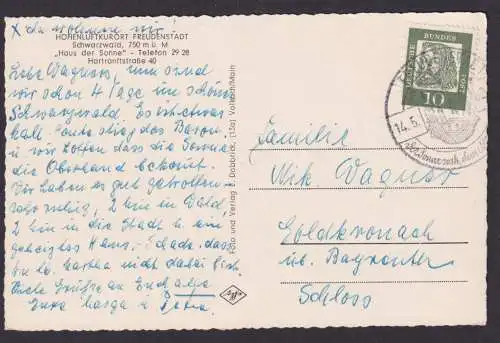 x da wohnen wir!
HÖHENLUFTKURORT FREUDENSTADT
Schwarzwald, 750 m ü. M
„Haus der Sonne" - Telefon 29 28
Hartranftstraße 40
Liebe Wagners, nun sind
wir schon 4 Tage im schönen
Schwarzwald. Es ist etwas
kalt. Heute stieg das Barom.
u. wir hoffen dass die Sonne
die Oberhand bekommt.
Wir haben es gut getroffen.
sehr ruhig, 2 Min im Wald,
2 Min in die Stadt u. ein
geheiztes Haus. Schade, dass
die lb. Martha nicht dabei ist.
Viele Grüße an Euch alle
Eure u. Petra.
Foto und Verlag E. Dabbrick, (15a) Vollrath/Main
DEUTSCHE BUNDESPOST
10
14.5.
Familie
Nik. Wagner
Goldkronach
üb. Bayreuther
Schloss